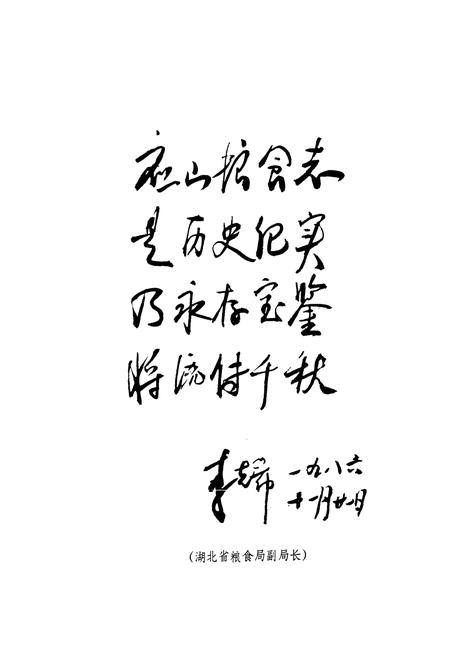 应山粮食志
是历史纪实
乃永存宝鉴
将流传千秋
李 一九八六
十一月廿一日
(湖北省粮食局副局长)